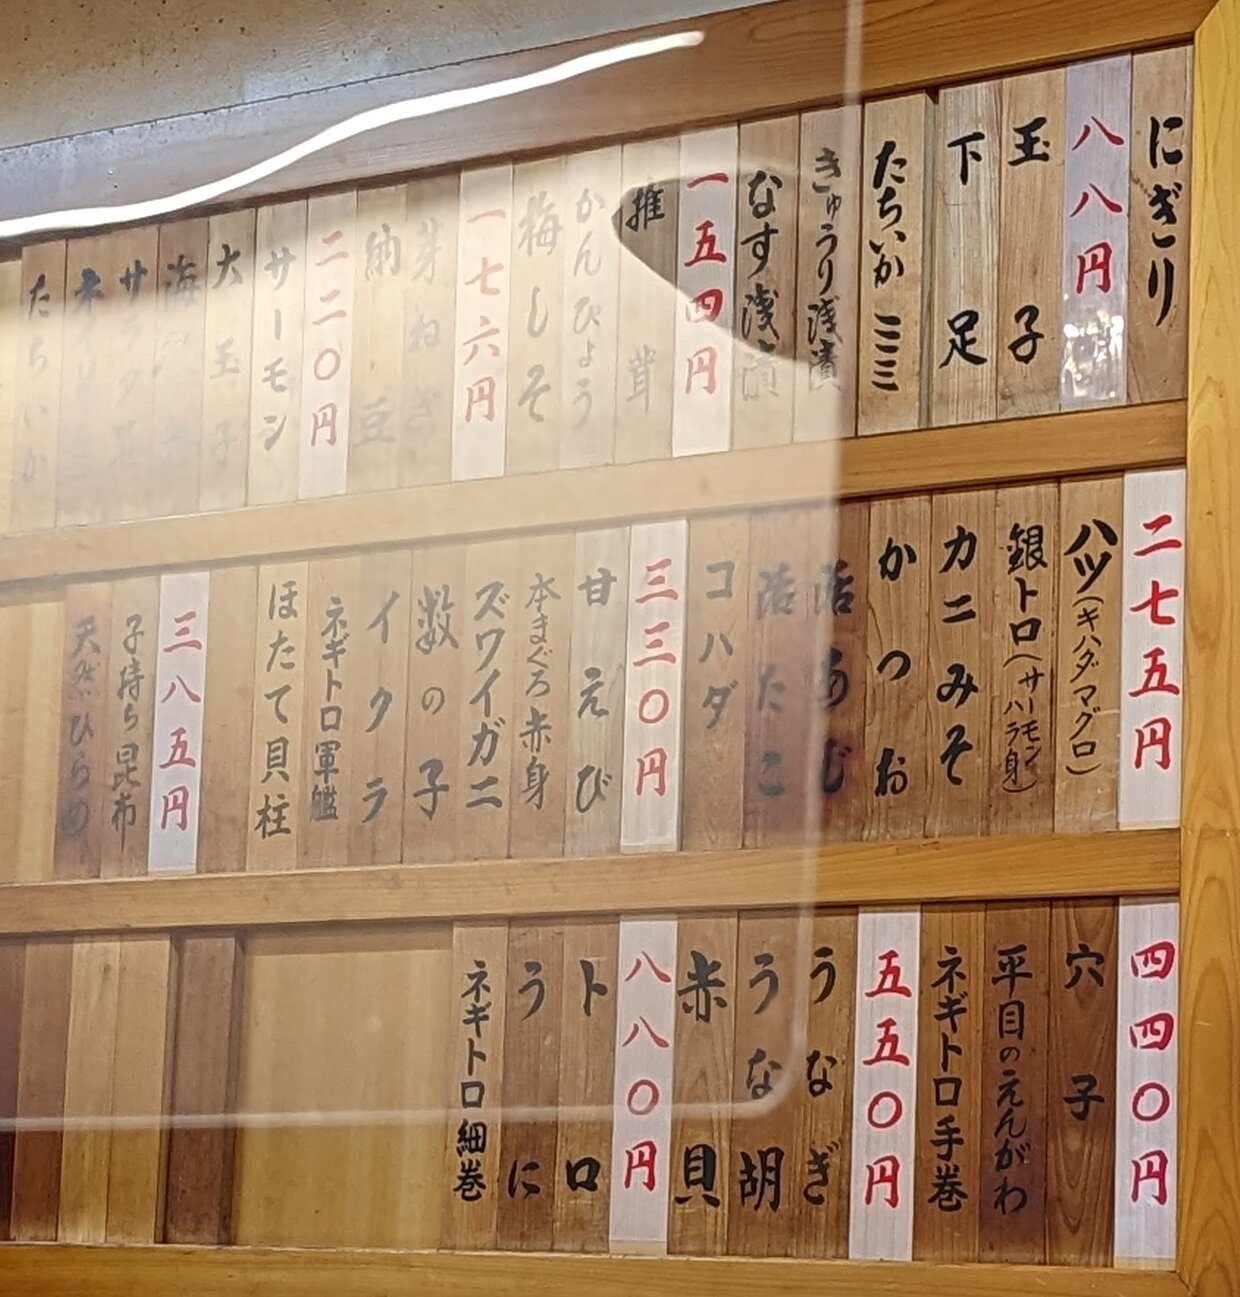 にぎり
八八円
玉子
下足
たちいか ミミ
きゅうり浅漬
なす浅漬
一五四円
椎茸
かんぴょう
梅しそ
一七六円
芽ねぎ
納豆
二二〇円
サーモン
大玉子
たちいか
二七五円
ハツ（キハダマグロ）
銀トロ（サーモンハラ身）
カニみそ
かつお
活あじ
活たこ
コハダ
三三〇円
甘えび
本まぐろ赤身
ズワイガニ
数の子
イクラ
ネギトロ軍艦
ほたて貝柱
三八五円
子持ち昆布
天然ひらめ
四四〇円
穴子
平目のえんがわ
ネギトロ手巻
五五〇円
うなぎ
うな胡
赤貝
八八〇円
トロ
うに
ネギトロ細巻